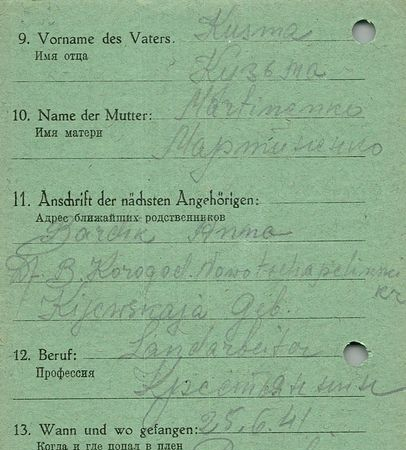 9. Vorname des Vaters. Kusma
Имя отца
Кузьма
10. Name der Mutter: Martinenko
Имя матери
Мартиненко
11. Anschrift der nächsten Angehörigen:
Адрес ближайших родственников
Bardik Anna
Df. B. Korogod. Nowoschepelinski
кr
Kijewskaja Geb.
12. Beruf: Landarbeiter
Профессия
Крестянинин
13. Wann und wo gefangen: 25.6.41
Когда и где попал в плен